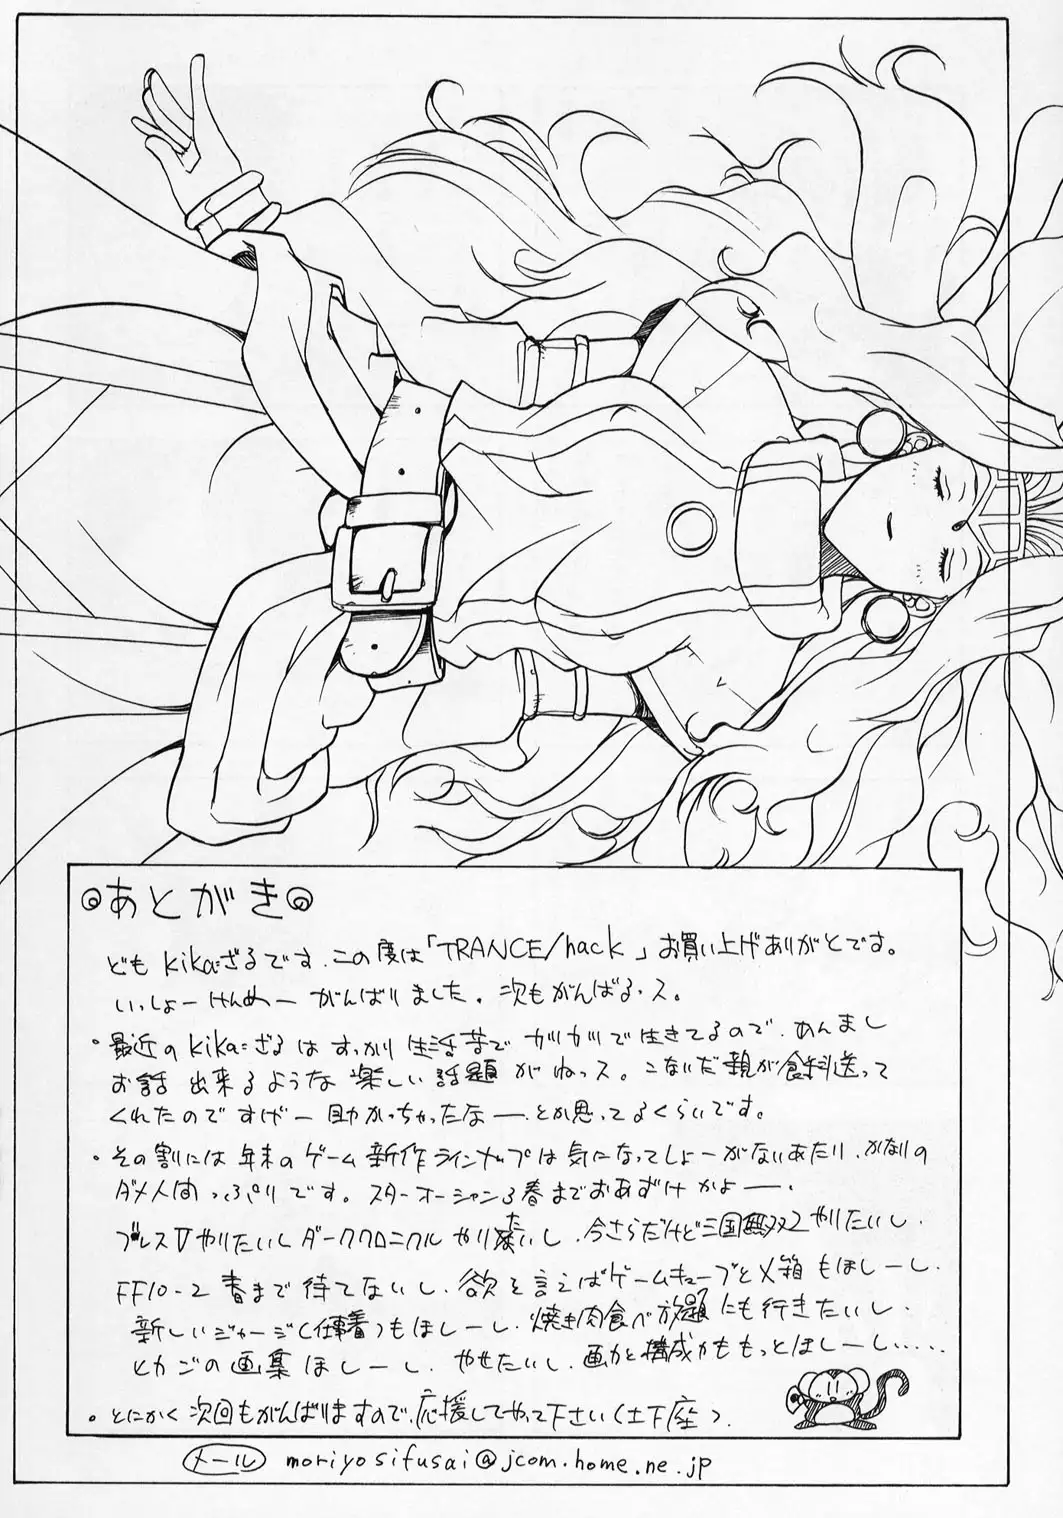 あとがき
どもkikaざるです。この度は「TRANCE/hack」お買い上げありがとです。
いっしょーけんめーがんばりました。次もがんばるっス。
・最近のkikaざるはすっかり生活苦でガリガリで生きてるので、あんまし
お話出来るような楽しい話題がねっス。こないだ親が食料送って
くれたのですげー助かっちゃったなー、とか思ってるくらいです。
・その割には年末のゲーム新作ラインナップは気になってしょーがないあたり、かなりの
ダメ人間っぷりです。スターオーシャン3春までおあずけかよー、
ブレスⅤやりたいしダーククロニクルやりたいし、今さらだけど三国無双2やりたいし、
FF10-2春まで待てないし、欲を言えばゲームキューブとX箱もほしーし、
新しいジャージ(仕事着)もほしーし、焼き肉食べ放題にも行きたいし、
ヒカゴの画集ほしーし、やせたいし、画力と構成力ももっとほしーし……
・とにかく次回もがんばりますので、応援してやって下さい(土下座)。
メール moriyosifusai@jcom.home.ne.jp